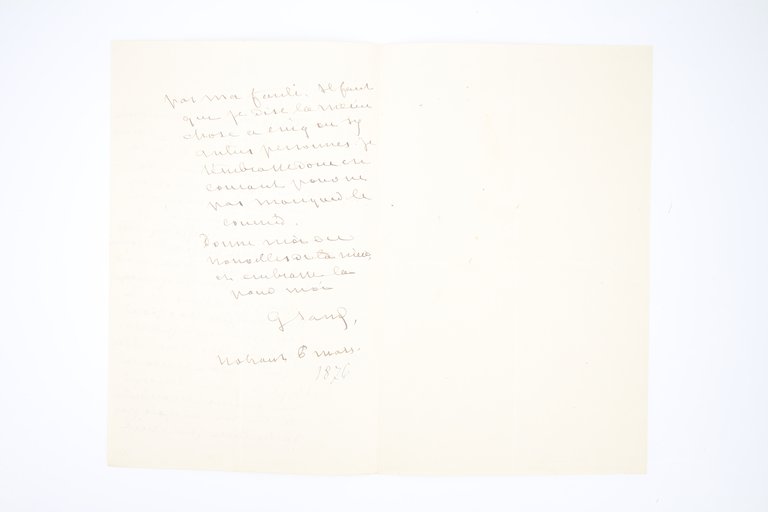 pas ma faute. Il faut
que je dise la même
chose à cinq ou six
autres personnes. Je
t'embrasse en
courant pour ne
pas manquer le
courrier.
Donne moi des
nouvelles de ta mère
et embrasse la
pour moi
G Sand.
Nohant 6 mars